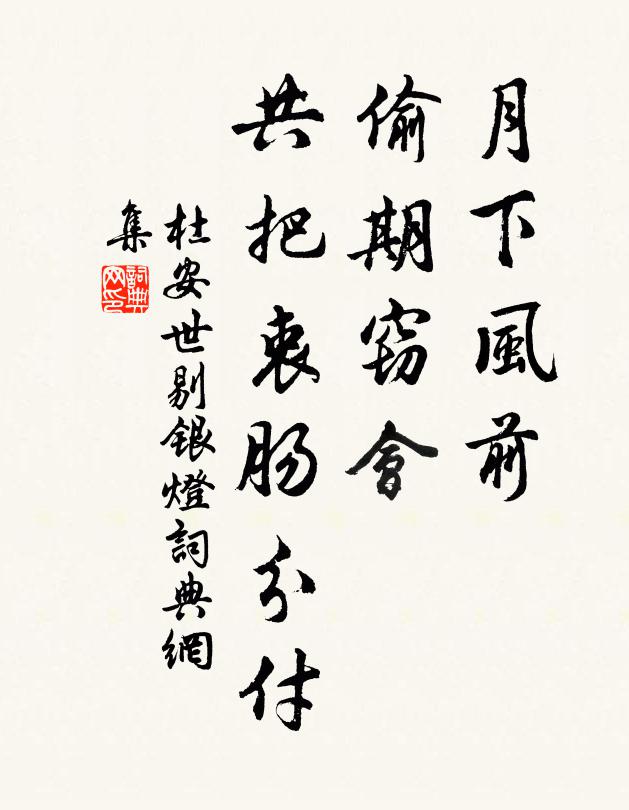 月下風前
偷期竊會
共把衷腸分付
杜安世剔銀燈詞典網
集
詞典
网印